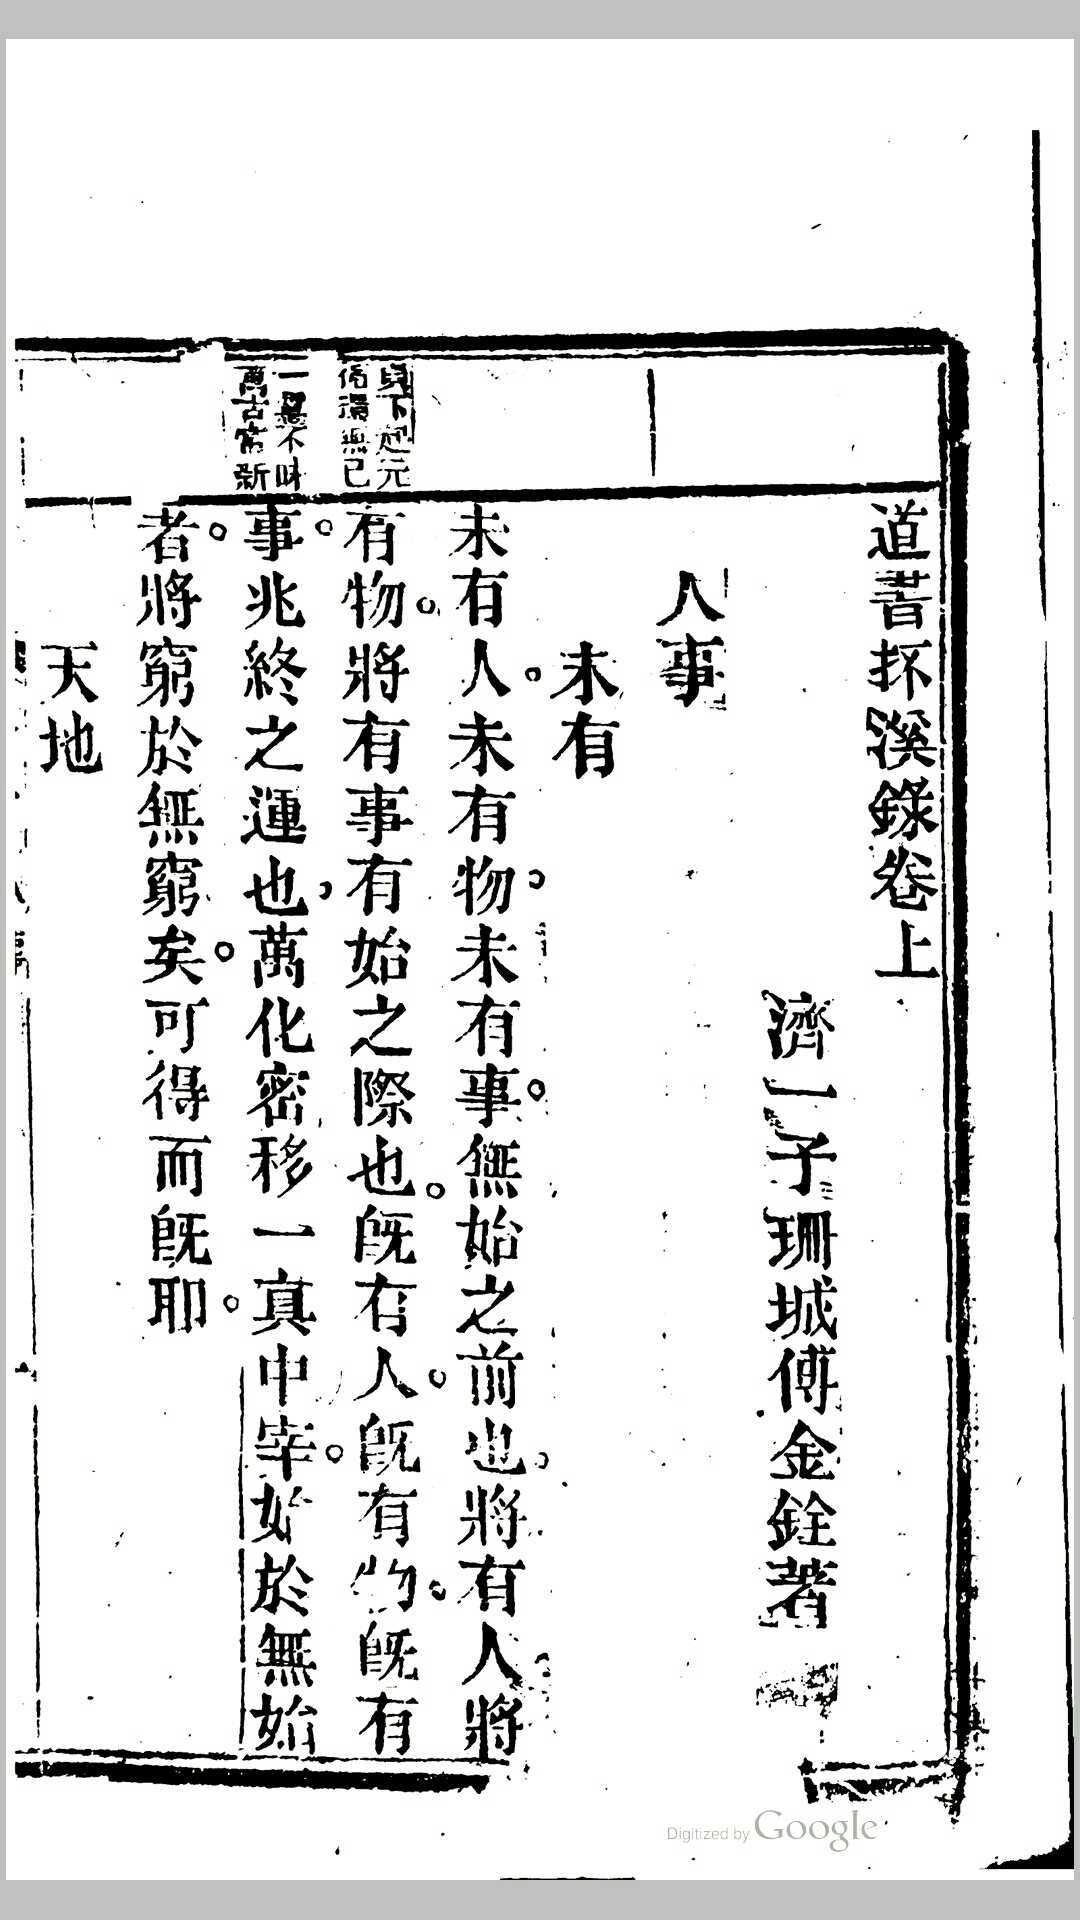 道書杯溪錄卷上
濟一子珊城傅金銓著
人事
未有
未有人未有物未有事無始之前也將有人將
有物將有事有始之際也旣有人旣有物旣有
事兆終之運也萬化密移一真中宰始於無始
者將窮於無窮矣可得而旣耶
天地
下起元
循環無已
一靈不昧
萬古常新
Digitized by Google